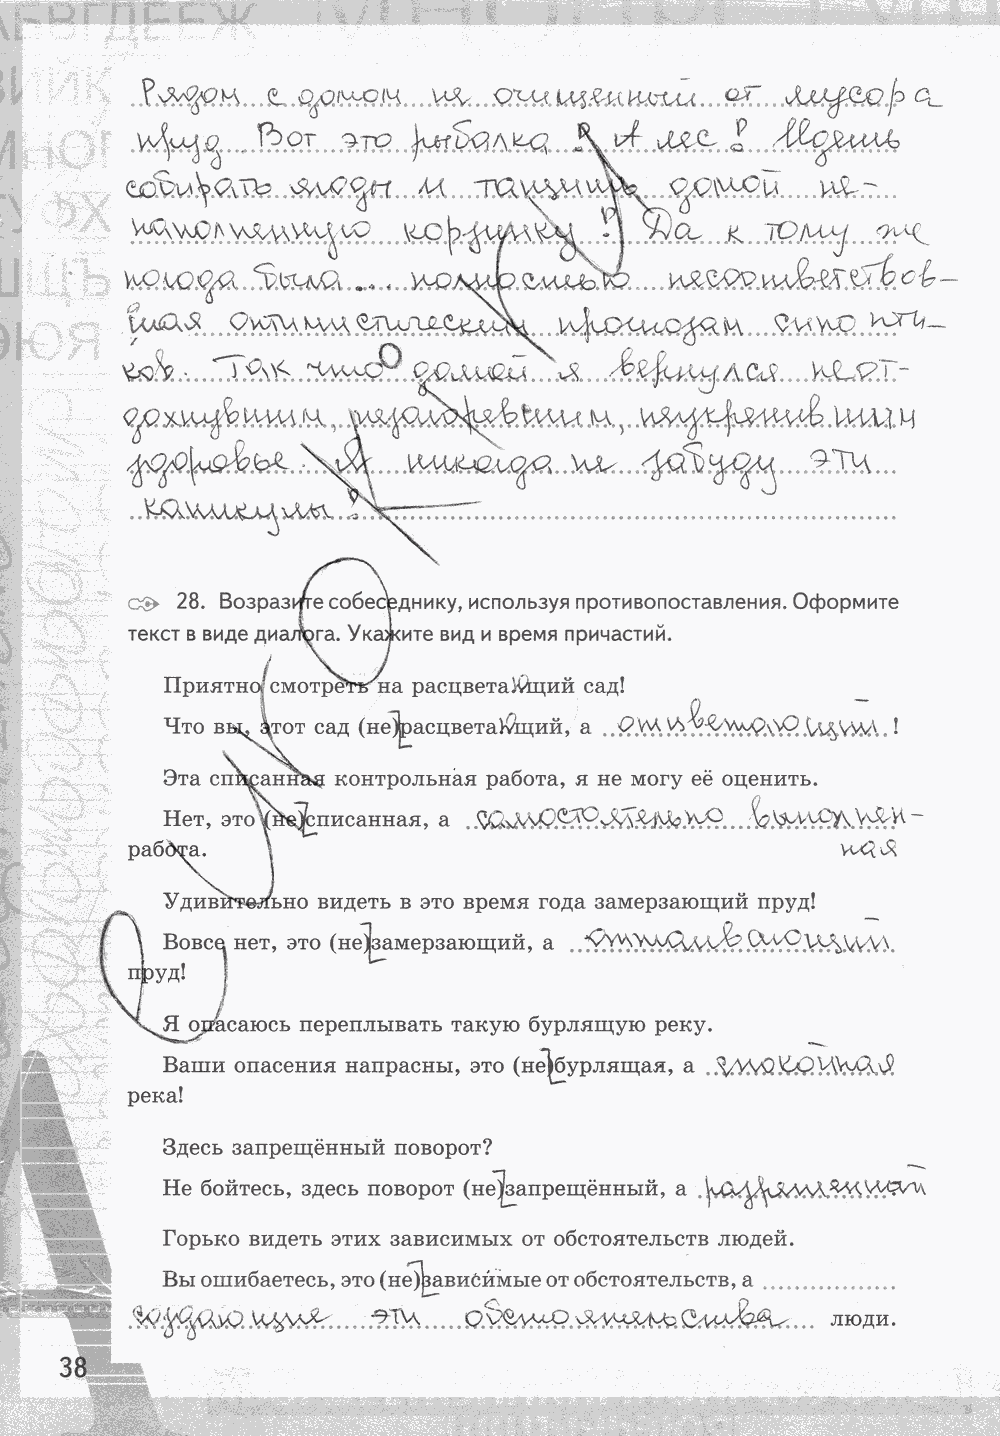 Рядом с домом не очищенный от мусора
пруд. Вот это рыбалка! А лес! Идёшь
собирать ягоды и тащишь домой не-
наполненную корзинку! Да к тому же
погода была... полностью несоответствов-
шая оптимистическим прогнозам синопти-
ков. Так что домой я вернулся неот-
дохнувшим, незагоревшим, неукрепившим
здоровье. Я никогда не забуду эти
каникулы!
28. Возразите собеседнику, используя противопоставления. Оформите
текст в виде диалога. Укажите вид и время причастий.
Приятно смотреть на расцветающий сад!
Что вы, этот сад (не)расцветающий, а отцветающий!
Эта списанная контрольная работа, я не могу её оценить.
Нет, это (не)списанная, а самостоятельно выполнен-
работа. ная
Удивительно видеть в это время года замерзающий пруд!
Вовсе нет, это (не)замерзающий, а оттаивающий
пруд!
Я опасаюсь переплывать такую бурлящую реку.
Ваши опасения напрасны, это (не)бурлящая, а спокойная
река!
Здесь запрещённый поворот?
Не бойтесь, здесь поворот (не)запрещённый, а разрешенный
Горько видеть этих зависимых от обстоятельств людей.
Вы ошибаетесь, это (не)зависимые от обстоятельств, а
создающие эти обстоятельства люди.
38